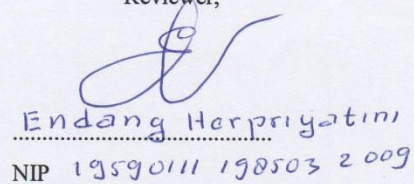 Reviewer,
Endang Herpriyatini
NIP 19590111 198503 2 009